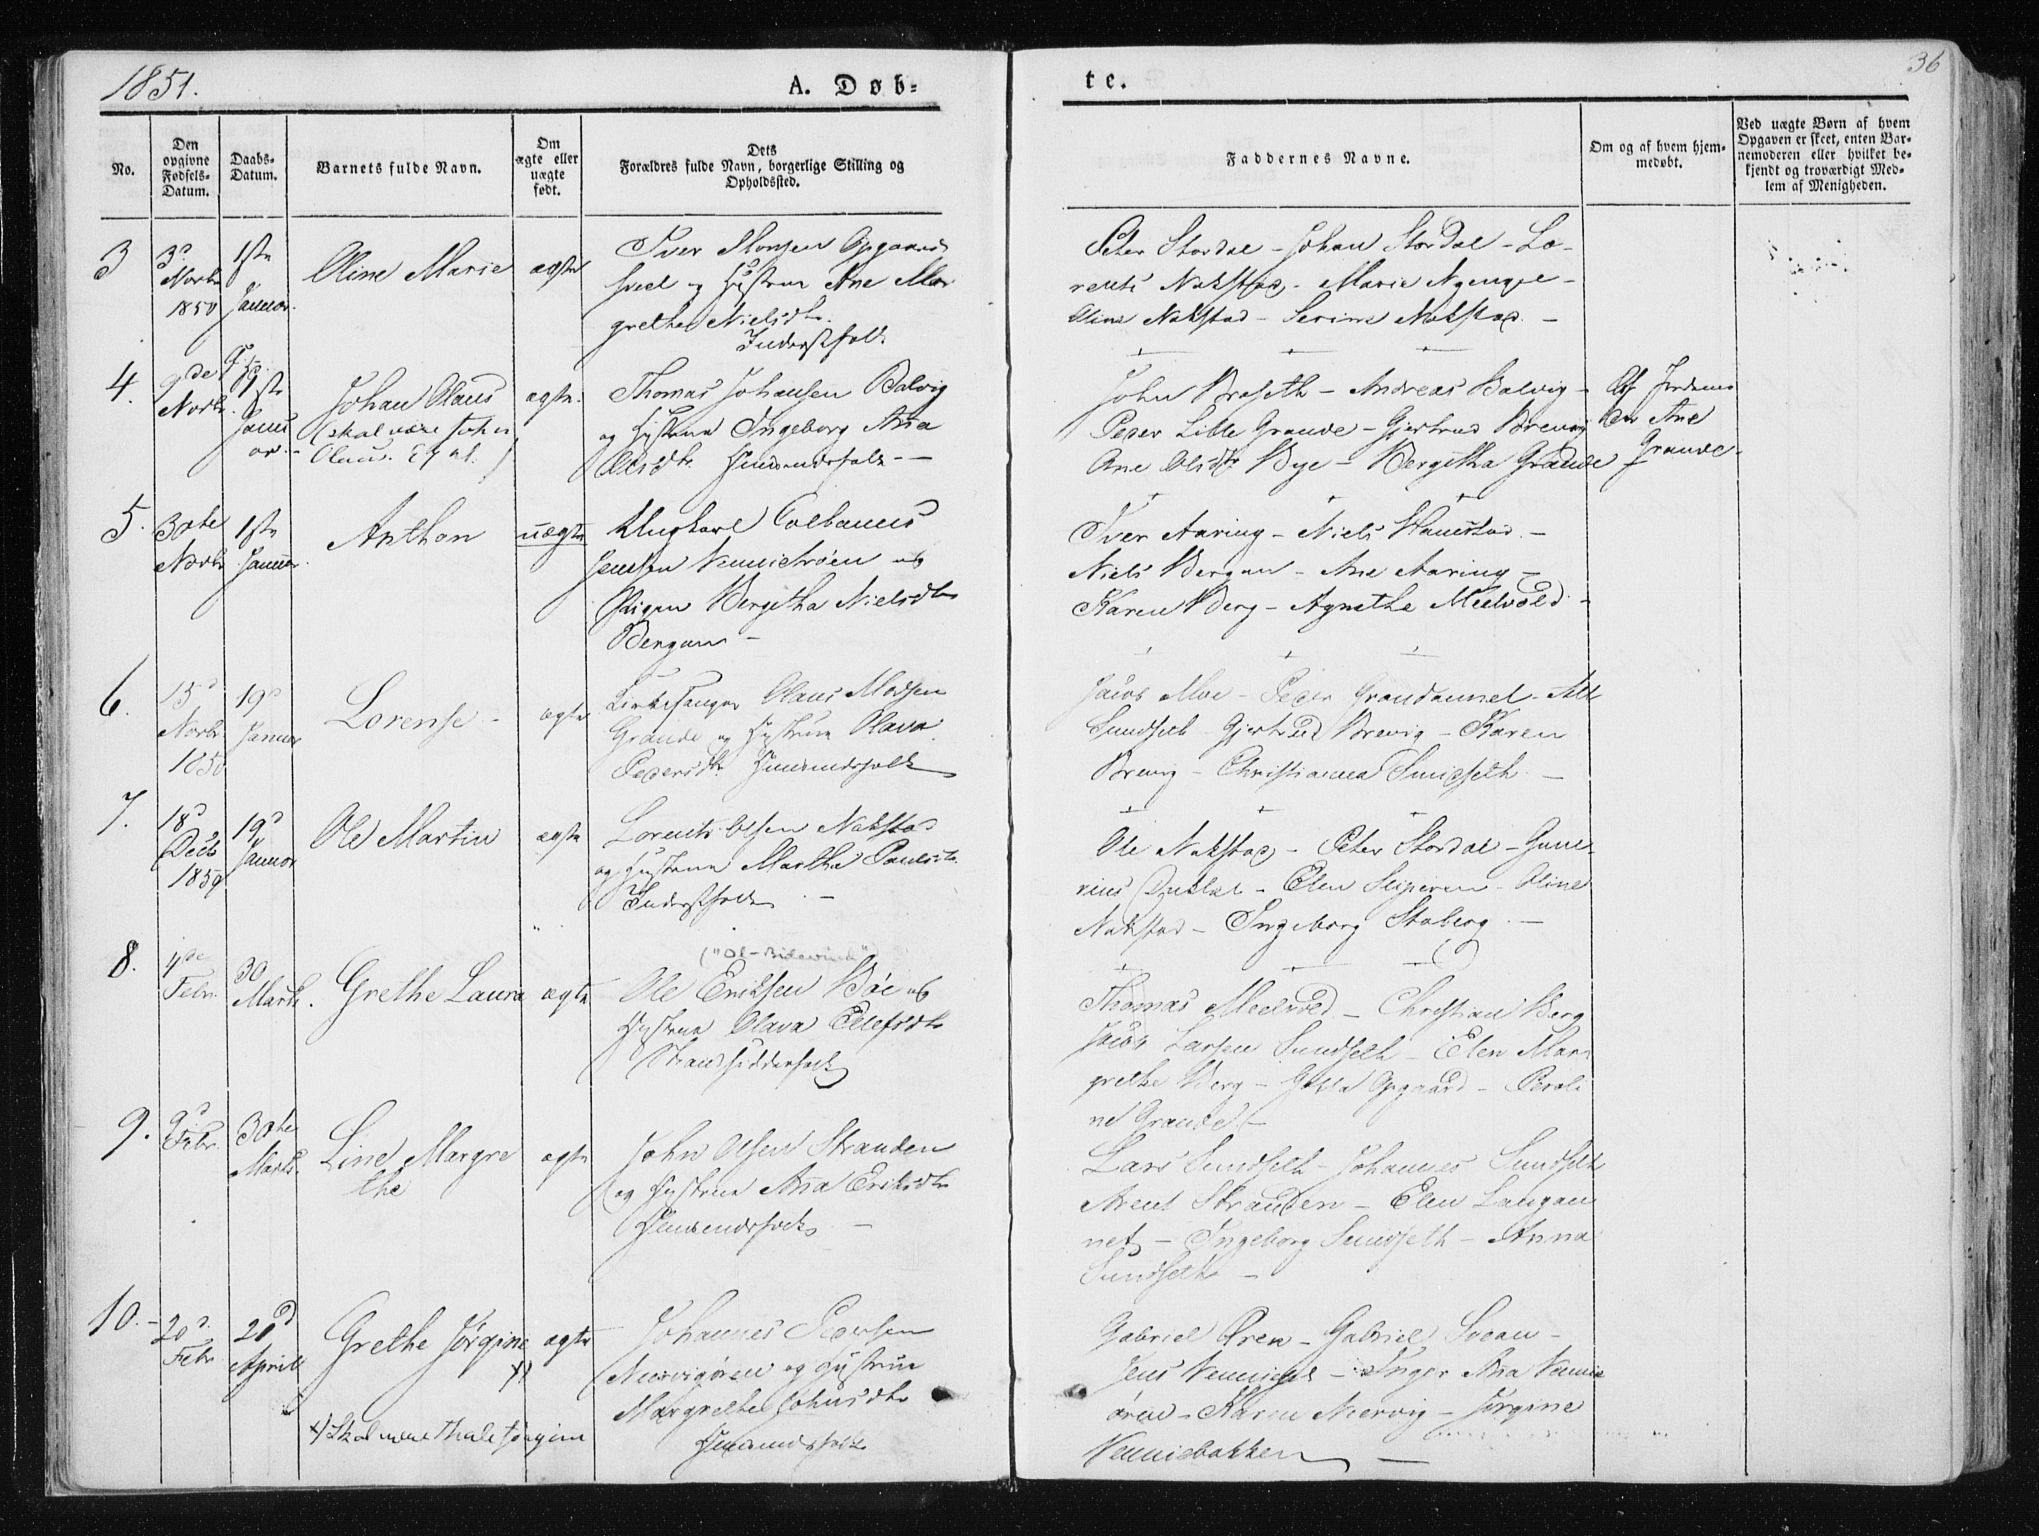 1851.
A. Døb-
te.
36
No.
Den opgivne Fødsels-Datum.
Daabs-Datum.
Barnets fulde Navn.
Om ægte eller uægte født.
Dets
Forældres fulde Navn, borgerlige Stilling og
Opholdssted.
Faddernes Navne.
Om og af hvem hjem-
medøbt.
Ved uægte Børn af hvem
Opgaven er skeet, enten Bar-
nemoderen eller hvilket be-
kjendt og troværdigt Med-
lem af Menigheden.
3
3d
Novbr
1850
1ste
Januar.
Oline Marie
ægte
Iver Monsen Opgaard
og Hustrue Ane Mar
grethe Nielsdtr.
Inderstfolk
Peter Stordal - Johan Stordal - Lo-
rents Nakstad - Marie
Oline Nakstad - Serine Nakstad -
4.
9de
Novbr.
1ste
Janu
ar.
Johan Olaus
(skal være John
Olaus.
ægte.
Thomas Johansen Balvig
og Hustrue Ingeborg Ana
Olsdtr. Huusmandsfolk -
John Braseth - Andreas Balvig -
Peder Lille Grande - Gjertrud Brevig
Ane Olsdtr Bye - Bergitha Grande
Af Jordemo
der Ane
Grande.
5.
30te
Novbr
1ste
Januar.
Anthon
uægte
Ungkarl Colbanus
Jensen og
Pigen Bergitha Nielsdtr
Bergan -
Iver Aaring - Niels Hamstad. -
Niels Bergan - Ane Aaring -
Karen Berg - Agnethe Meelvold -
6.
15d
Novbr.
1850
19d
Januar
Lorense -
ægte
Kirkesanger Olaus Madsen
Grande og Hustrue Olava
Pedersdtr Huusmandsfolk
Jacob Moe - Peder Grandaunet -
Sundseth Gjertrud Brevig - Karen
Brevig - Christianna Sundseth. -
7.
18d
Decb
1850
19d
Januar
Ole Martin
ægte
Lorents Olsen Nakstad
og Hustrue Martha Paulsdtr.
Inderstfolk -
Ole Nakstad - Peter Stordal - Gune-
rius - Elen - Oline
Nakstad - Ingeborg Staberg. -
8.
4de
Febr.
30
Marts.
Grethe Laura
ægte
Ole Eriksen Böe og
Hustrue Olava Ellefsdtr
Strandsidderfolk
Thomas Meelvold - Christian Berg
Jacob Larsen Sundseth - Elen Mar
grethe Berg - Opgaard - Peroli
ne Grande. -
9.
9d
Febr.
30te
Marts.
Line Margre
the
ægte
John Olsen Stranden
og Hustrue Ana Eriksdtr
Huusmandsfolk -
Lars Sundseth - Johannes Sundseth
Arent Stranden - Elen Langau
net - Ingeborg Sundseth - Anna
Sundseth -
10. -
20d.
Febr
20d
April
Grethe Jørgine
x)
ægte
Johannes Pedersen
og Hustrue
Margrethe Johnsdtr
Huusmandsfolk
x) Skal være Thale Jørgine
Gabriel Øren - Gabriel Svean -
Jens - Inger Ana
øren - Karen Neervig - Jørgine
Vennisbakken -